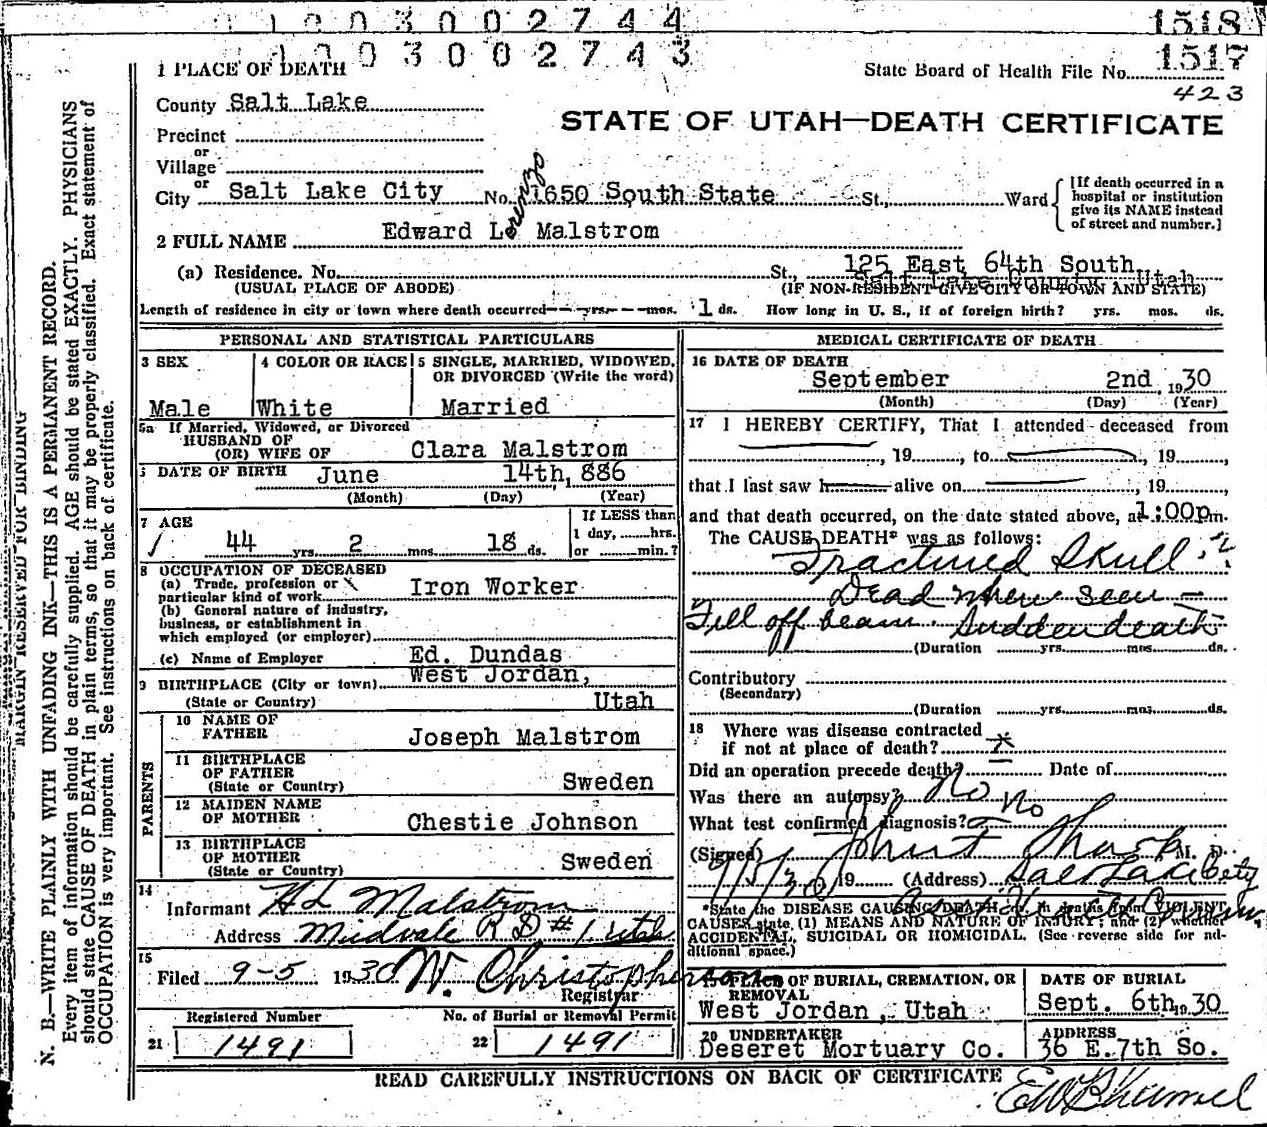 1003002744 1518
1003002743 1517
1 PLACE OF DEATH State Board of Health File No.
423
County Salt Lake
STATE OF UTAH—DEATH CERTIFICATE
Precinct
or
Village
or
City Salt Lake City No. 1650 South State St., Ward
[If death occurred in a hospital or institution give its NAME instead of street and number.]
2 FULL NAME Edward Lorenzo Malstrom
(a) Residence. No. St., 125 East 64th South
Salt Lake County Utah
(USUAL PLACE OF ABODE) (IF NON-RESIDENT GIVE CITY OR TOWN AND STATE)
Length of residence in city or town where death occurred yrs. mos. 1 ds. How long in U. S., if of foreign birth? yrs. mos. ds.
PERSONAL AND STATISTICAL PARTICULARS
3 SEX
Male
4 COLOR OR RACE
White
5 SINGLE, MARRIED, WIDOWED,
OR DIVORCED (Write the word)
Married
5a If Married, Widowed, or Divorced
HUSBAND OF
(OR) WIFE OF Clara Malstrom
6 DATE OF BIRTH June 14th, 886
(Month) (Day) (Year)
7 AGE
44 yrs. 2 mos. 18 ds.
If LESS than
1 day, hrs.
or min.?
8 OCCUPATION OF DECEASED
(a) Trade, profession or
particular kind of work Iron Worker
(b) General nature of industry,
business, or establishment in
which employed (or employer)
(c) Name of Employer Ed. Dundas
9 BIRTHPLACE (City or town) West Jordan,
(State or Country) Utah
PARENTS
10 NAME OF
FATHER Joseph Malstrom
11 BIRTHPLACE
OF FATHER
(State or Country) Sweden
12 MAIDEN NAME
OF MOTHER Chestie Johnson
13 BIRTHPLACE
OF MOTHER
(State or Country) Sweden
14
Informant H L Malstrom
Address Midvale R D #1. Utah
15
Filed 9-5 1930 W. Christopherson
Registrar
Registered Number No. of Burial or Removal Permit
21 1491 22 1491
MEDICAL CERTIFICATE OF DEATH
16 DATE OF DEATH
September 2nd 1930
(Month) (Day) (Year)
17 I HEREBY CERTIFY, That I attended deceased from
, 19 , to , 19 ,
that I last saw h alive on , 19 ,
and that death occurred, on the date stated above, at 1:00p m.
The CAUSE DEATH* was as follows:
Fractured Skull
Dead when seen —
Fell off beam. Sudden death
(Duration yrs. mos. ds.
Contributory
(Secondary)
(Duration yrs. mos. ds.
18 Where was disease contracted
if not at place of death?
Did an operation precede death? Date of
Was there an autopsy? No
What test confirmed diagnosis? No
(Signed) M. D.
9/5/30 19 (Address) Salt Lake City
*State the DISEASE CAUSING DEATH, or, in deaths from VIOLENT
CAUSES state (1) MEANS AND NATURE OF INJURY; and (2) whether
ACCIDENTAL, SUICIDAL OR HOMICIDAL. (See reverse side for ad-
ditional space.)
19 PLACE OF BURIAL, CREMATION, OR
REMOVAL
West Jordan, Utah
DATE OF BURIAL
Sept. 6th, 1930
20 UNDERTAKER
Deseret Mortuary Co.
ADDRESS
36 E. 7th So.
READ CAREFULLY INSTRUCTIONS ON BACK OF CERTIFICATE
MARGIN RESERVED FOR BINDING
N. B.—WRITE PLAINLY WITH UNFADING INK—THIS IS A PERMANENT RECORD.
Every item of information should be carefully supplied. AGE should be stated EXACTLY. PHYSICIANS
should state CAUSE OF DEATH in plain terms, so that it may be properly classified. Exact statement of
OCCUPATION is very important. See instructions on back of certificate.